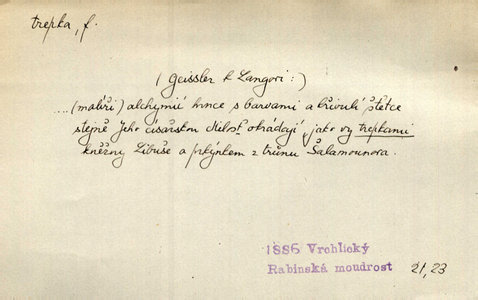 trepka, f.
(Geissler k Langovi:)
.... (malíři) alchymií hrnce s barvami a křivulí štětce
stejně Jeho císařskou Milost okrádají, jako vy trepkami
kněžny Libuše a prkýnkem z trůnu Šalamounova.
1886 Vrchlický
Rabínská moudrost 21,23